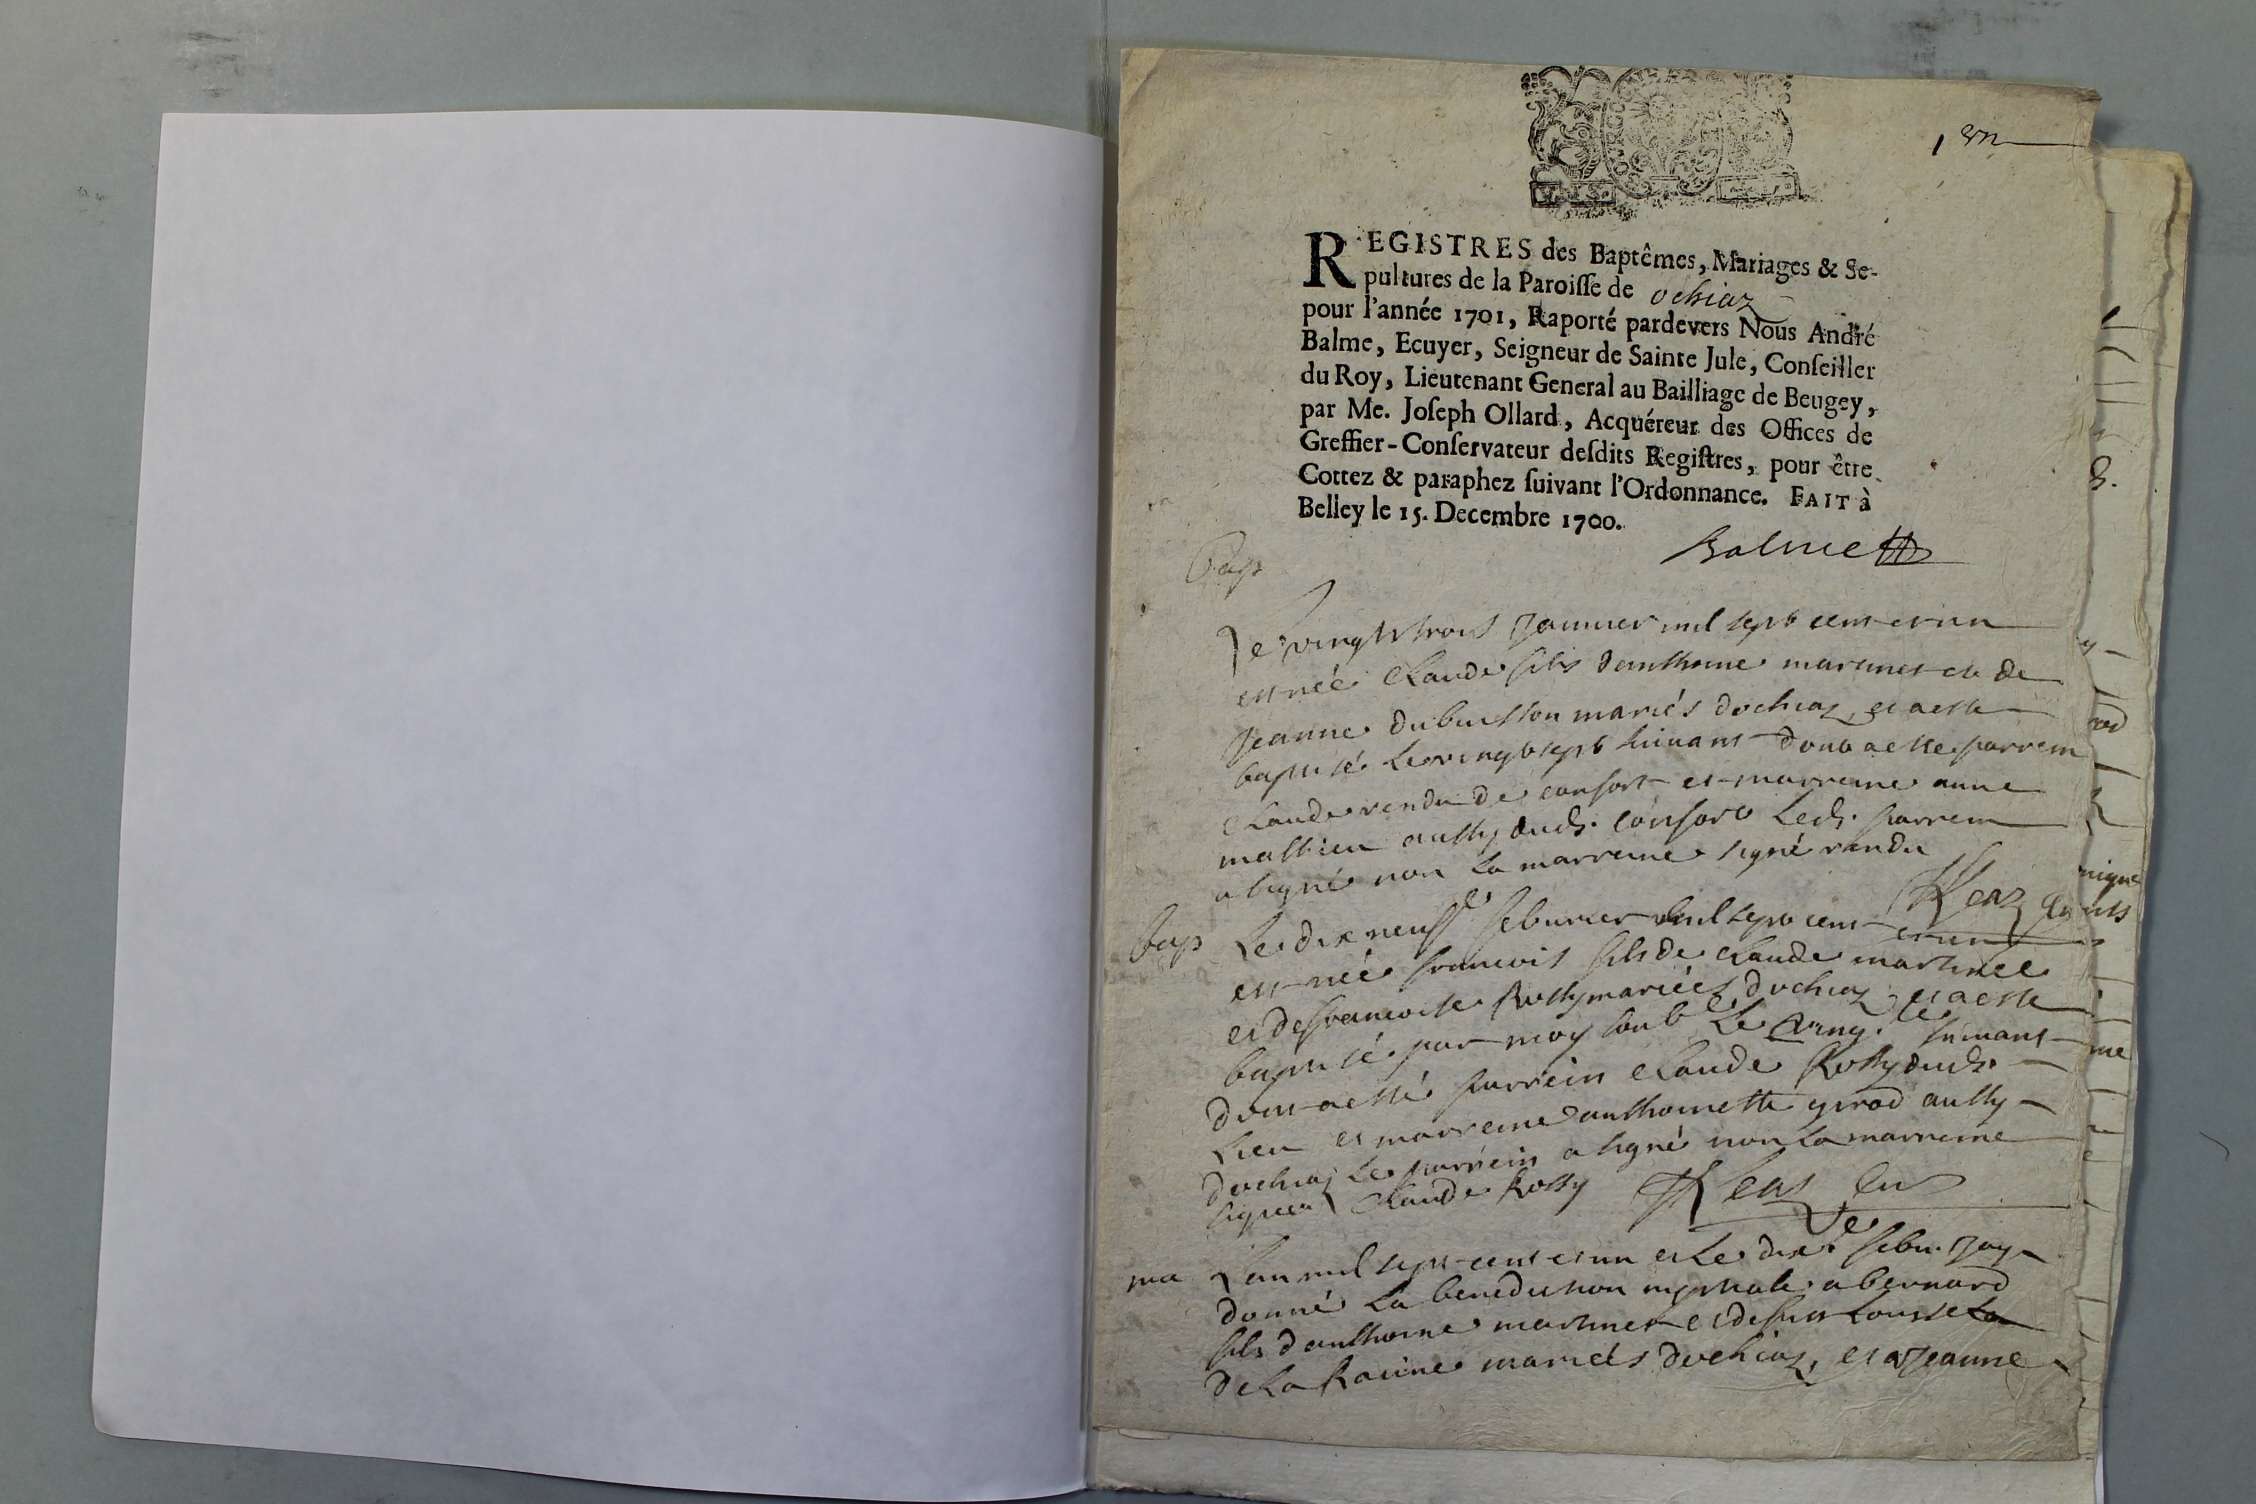 1 er
REGISTRES des Baptêmes, Mariages & Se-
pultures de la Paroisse de ochiaz
pour l'année 1701, Raporté pardevers Nous André
Balme, Ecuyer, Seigneur de Sainte Jule, Conseiller
du Roy, Lieutenant General au Bailliage de Beugey,
par Me. Joseph Ollard, Acquéreur des Offices de
Greffier-Conservateur desdits Registres, pour être
Cottez & paraphez suivant l'Ordonnance. FAIT à
Belley le 15. Decembre 1700.
Balme
Bap
Le vingt trois januier mil sept cent et un
est née Claude fils danthoine martinet et de
jeanne dubuisson mariés dochiaz, et a esté
baptisé le vingt sept suiuant dont a esté parrein
Claude rendu de confort et marreine anne
mathieu aussy dud. confort led. parrein
a signé non la marreine signé randu
Bap
Le dix neufe feburier mil sept cent et un
est née francois fils de Claude martinet
et de francoise Rossy mariées dochiaz et a esté
baptisé par moy soub. le suiuant
dont a esté parrein Claude Rossy dud.
lieu et marreine anthoinette girod aussy
dochiaz le parrein a signé non la marreine
Claude Rossy
ma
L'an mil sept cent et un et le dixe febu. jay
donné la benediction nuptiale a bernard
fils danthoine martinet et de
de la Racine mariés dochiaz, et a jeanne